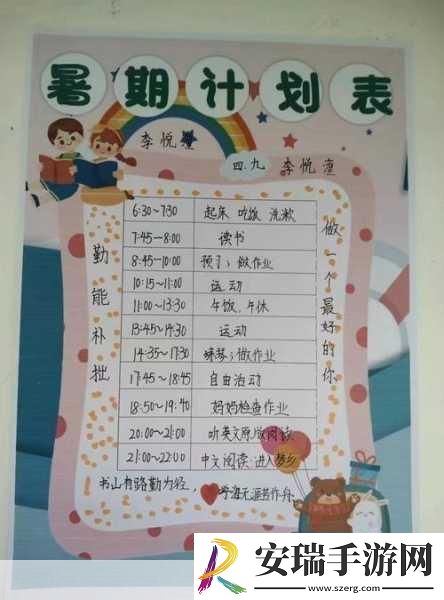 暑期计划表
李悦潼
四.九 李悦潼
勤能补拙
做一个最好的你
6:30~7:30 起床 吃饭 洗漱
7:45~8:00 读书
8:45~10:00 预习;做作业
10:15~11:00 运动
11:00~13:30 午饭,午休
13:45~14:30 运动
14:35~17:30 练琴;做作业
17:45~18:45 自由活动
18:50~19:40 妈妈检查作业
20:00~21:00 听英文原版阅读
21:00~22:00 中文阅读 进入梦乡
书山有路勤为径,
学海无涯苦作舟.
安瑞手游网
www.szerg.com